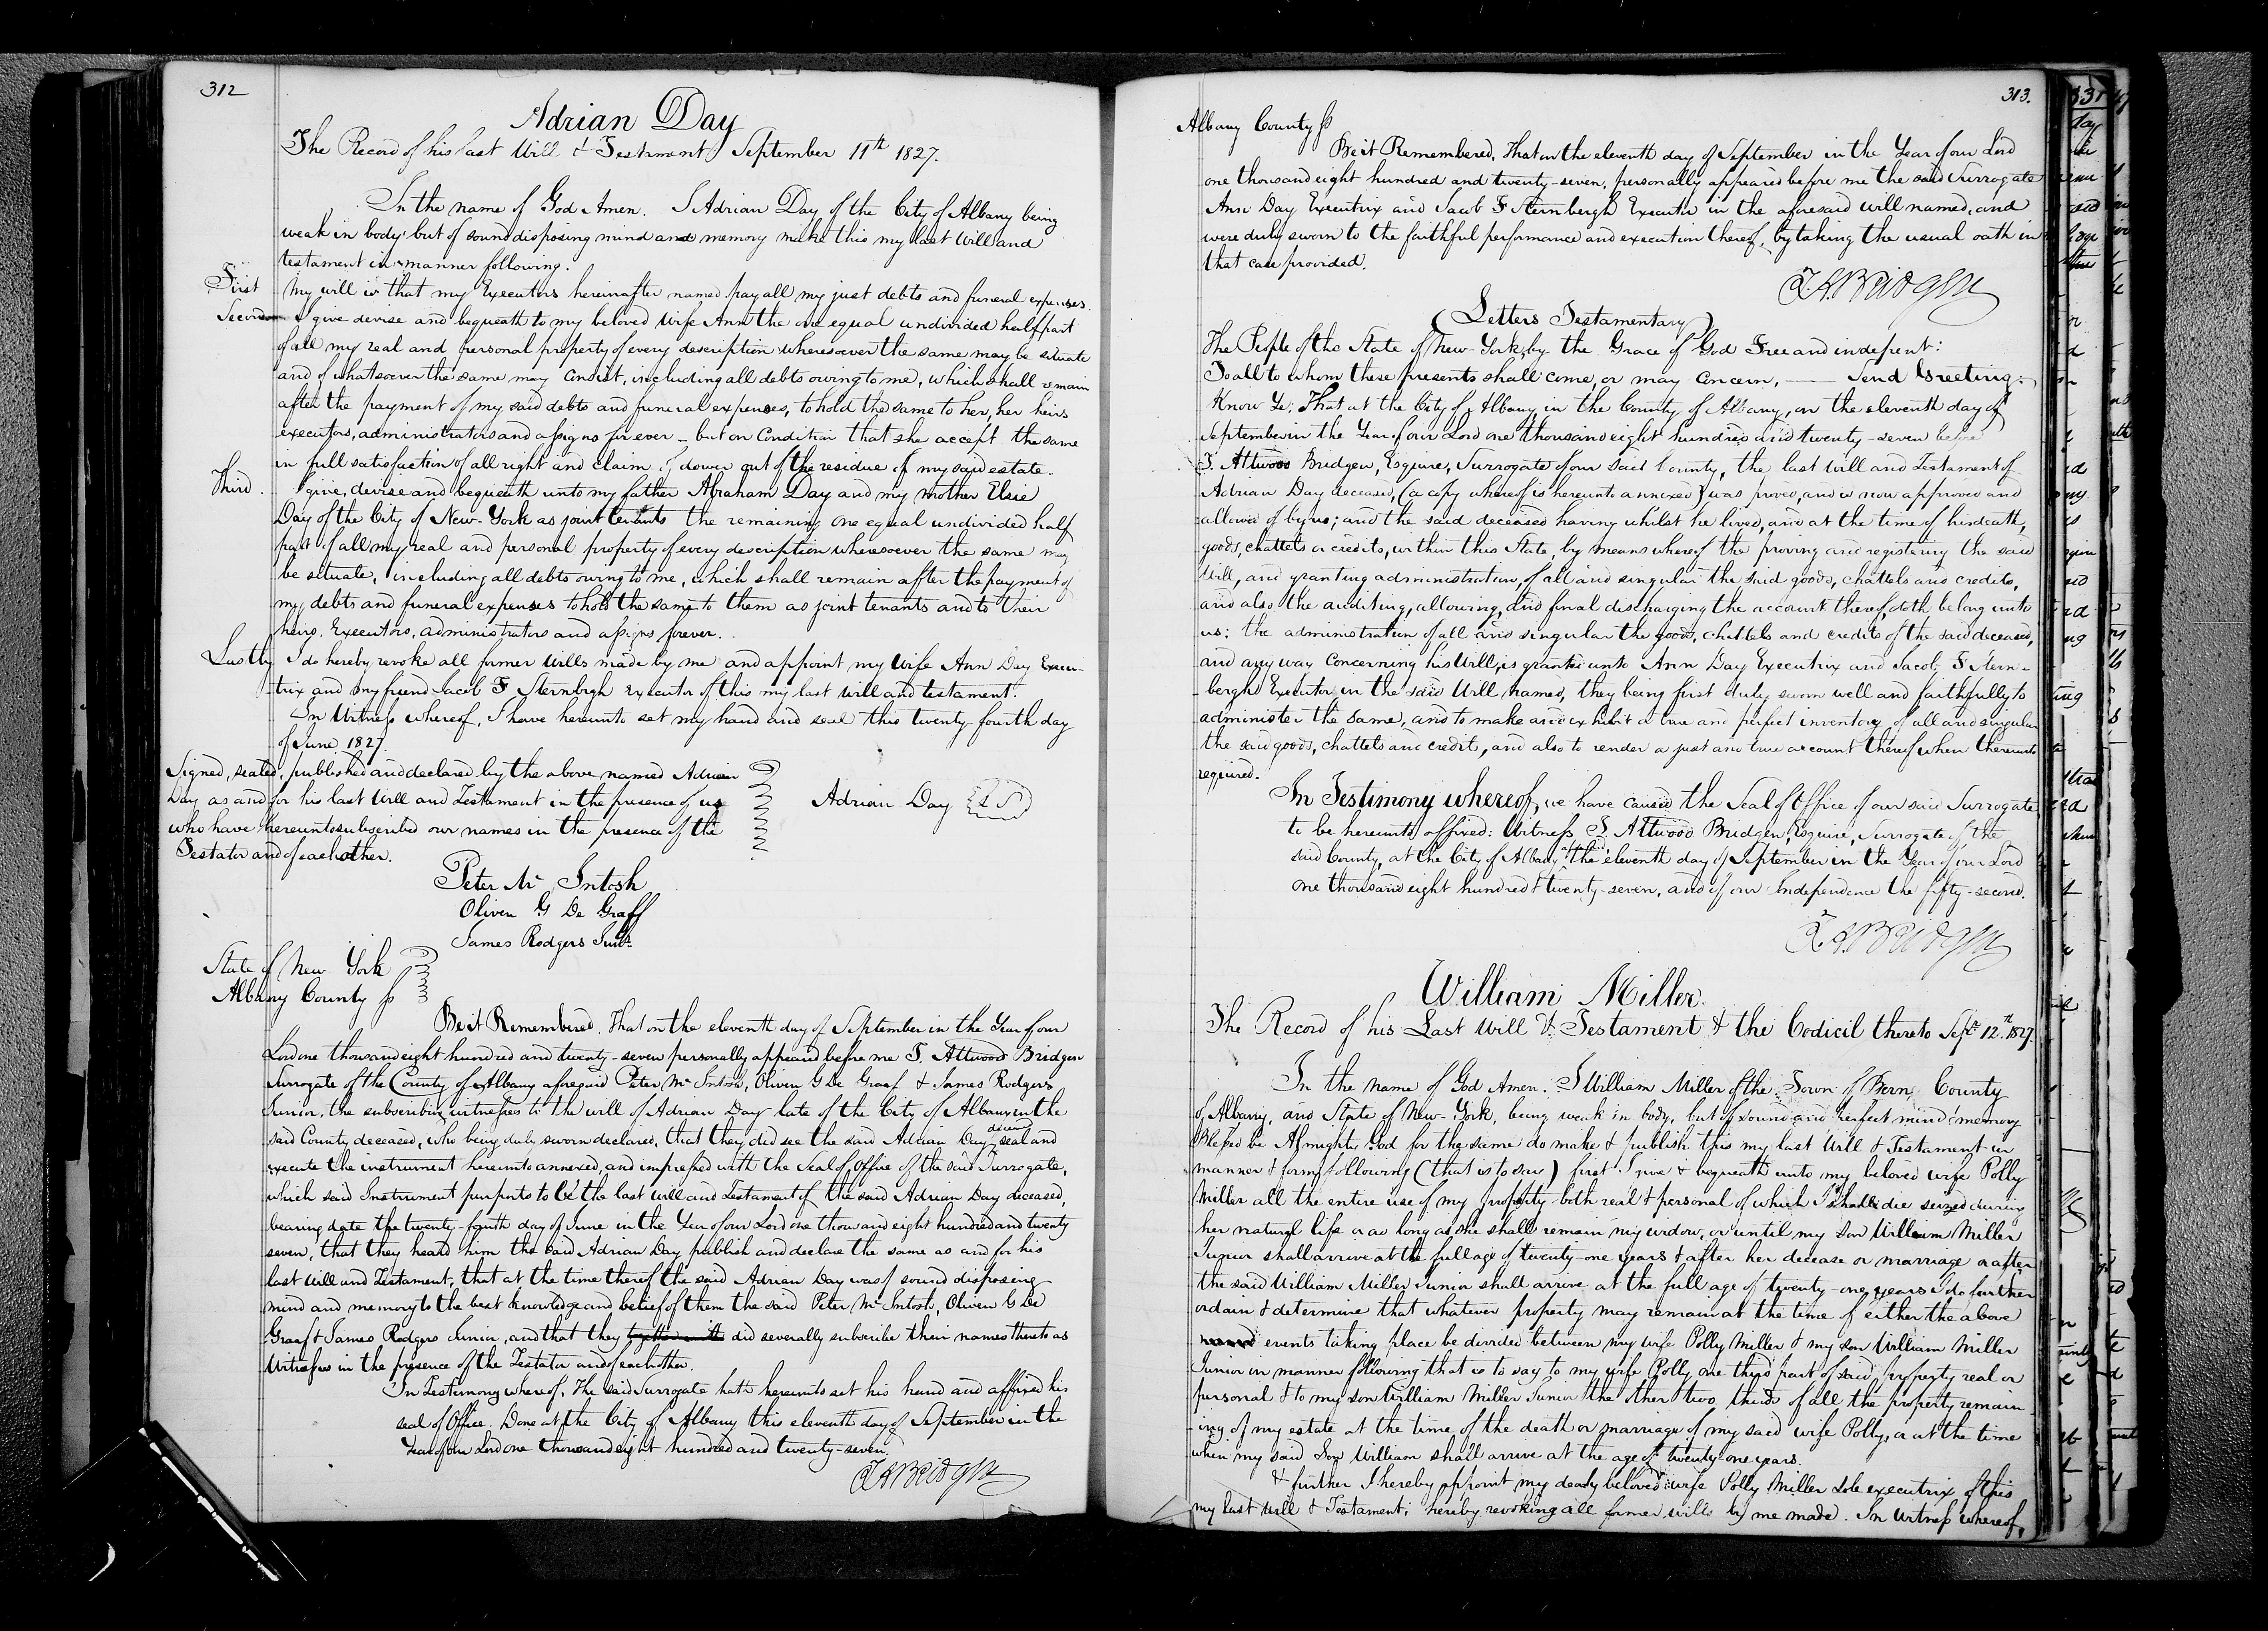 312
Adrian Day
The Record of his last Will & Testament September 11th 1827.
In the name of God Amen. I Adrian Day of the City of Albany being
weak in body but of sound disposing mind and memory make this my last Will and
testament in manner following.
First My will is that my Executors hereinafter named pay all my just debts and funeral expenses.
Second I give devise and bequeath to my beloved Wife Ann the one equal undivided half part
of all my real and personal property of every description wheresoever the same may be situate
and of whatsoever the same may consist, including all debts owing to me, which shall remain
after the payment of my said debts and funeral expenses, to hold the same to her, her heirs
executors, administrators and assigns for ever – but on condition that she accept the same
in full satisfaction of all right and claim of dower out of the residue of my said estate.
Third. I give, devise and bequeath unto my father Abraham Day and my mother Elsie
Day of the City of New-York as joint tenants the remaining one equal undivided half
part of all my real and personal property of every description wheresoever the same may
be situate, including all debts owing to me, which shall remain after the payment of
my debts and funeral expenses to hold the same to them as joint tenants and to their
heirs, Executors, administrators and assigns forever.
Lastly I do hereby revoke all former Wills made by me and appoint my Wife Ann Day Execu-
trix and my friend Jacob F Sternbergh Executor of this my last will and testament.
In Witness whereof, I have hereunto set my hand and seal this twenty-fourth day
of June 1827.
Signed, sealed, published and declared by the above named Adrian
Day as and for his last Will and Testament in the presence of us
who have hereunto subscribed our names in the presence of the
Testator and of each other.
Adrian Day L S
Peter Mc Intosh
Oliven G De Graff
James Rodgers Junr
State of New York
Albany County ss
Be it Remembered, That on the eleventh day of September in the Year of our
Lord one thousand eight hundred and twenty-seven personally appeared before me T. Attwood Bridgen
Surrogate of the County of Albany aforesaid Peter Mc Intosh, Oliven G De Graaf & James Rodgers
Junior, the subscribing witnesses to the will of Adrian Day late of the City of Albany in the
said County deceased, who being duly sworn declared, that they did see the said Adrian Day seal and
execute the instrument hereunto annexed, and impressed with the Seal of Office of the said Surrogate,
which said Instrument purports to be the last will and Testament of the said Adrian Day deceased,
bearing date the twenty-fourth day of June in the Year of our Lord one thousand eight hundred and twenty
seven, that they heard him the said Adrian Day publish and declare the same as and for his
last Will and Testament, that at the time thereof the said Adrian Day was of sound disposing
mind and memory to the best knowledge and belief of them the said Peter Mc Intosh, Oliven G De
Graaf & James Rodgers Junior, and that they together with did severally subscribe their names thereto as
Witnesses in the presence of the Testator and of each other.
In Testimony whereof, The said Surrogate hath hereunto set his hand and affixed his
seal of Office. Done at the City of Albany this eleventh day of September in the
Year of our Lord one thousand eight hundred and twenty-seven.
T A Bridgen
313.
Albany County ss
Be it Remembered, That on the eleventh day of September in the Year of our Lord
one thousand eight hundred and twenty-seven, personally appeared before me the said Surrogate
Ann Day Executrix and Jacob F Sternbergh Executor in the aforesaid will named, and
were duly sworn to the faithful performance and execution thereof, by taking the usual oath in
that case provided.
T A Bridgen
(Letters Testamentary)
The People of the State of New-York, by the Grace of God Free and indepent:
To all to whom these presents shall come, or may concern, — Send Greeting:
Know Ye, That at the City of Albany, in the County of Albany, on the eleventh day of
September in the Year of our Lord one thousand eight hundred and twenty-seven before
T. Attwood Bridgen, Esquire, Surrogate of our said County, the last will and Testament of
Adrian Day deceased, (a copy whereof is hereunto annexed) was proved, and is now approved and
allowed of by us; and the said deceased having whilst he lived, and at the time of his death,
goods, chattels or credits, within this State, by means whereof the proving and registering the said
Will, and granting administration, of all and singular the said goods, chattels and credits,
and also the auditing, allowing, and final discharging the account thereof, doth belong unto
us; the administration of all and singular the goods, chattels and credits of the said deceased,
and any way concerning his Will, is granted unto Ann Day Executrix and Jacob F Stern-
bergh Executor in the said Will named, they being first duly sworn well and faithfully to
administer the same, and to make and exhibit a true and perfect inventory of all and singular
the said goods, chattels and credits, and also to render a just and true account thereof when thereunto
required.
In Testimony whereof, we have caused the Seal of Office of our said Surrogate
to be hereunto affixed: Witness T. Attwood Bridgen, Esquire, Surrogate of the
said County, at the City of Albany aforesaid, the eleventh day of September in the Year of our Lord
one thousand eight hundred & twenty-seven, and of our Independence the fifty-second.
T A Bridgen
William Miller.
The Record of his Last Will & Testament & the Codicil thereto Sept. 12th 1827.
In the name of God Amen. I William Miller of the Town of Bern, County
of Albany, and State of New-York, being weak in body, but of sound and perfect mind & memory
Blessed be Almighty God for the same do make & publish this my last Will & Testament in
manner & form following (that is to say) first I give & bequeath unto my beloved wife Polly
Miller all the entire use of my property both real & personal of which I shall die seized during
her natural life or as long as she shall remain my widow, or until my Son William Miller
Junior shall arrive at the full age of twenty-one years & after her decease or marriage or after
the said William Miller Junior shall arrive at the full age of twenty-one years I do further
ordain & determine that whatever property may remain at the time of either the above
named events taking place be divided between my wife Polly Miller & my son William Miller
Junior in manner following that is to say to my wife Polly one third part of said property real or
personal & to my son William Miller Junior the other two thirds of all the property remain
-ing of my estate at the time of the death or marriage of my said wife Polly, or at the time
when my said Son William shall arrive at the age of twenty-one years.
& further I hereby appoint my dearly beloved wife Polly Miller Sole executrix of this
my last Will & Testament, hereby revoking all former wills by me made. In Witness whereof,